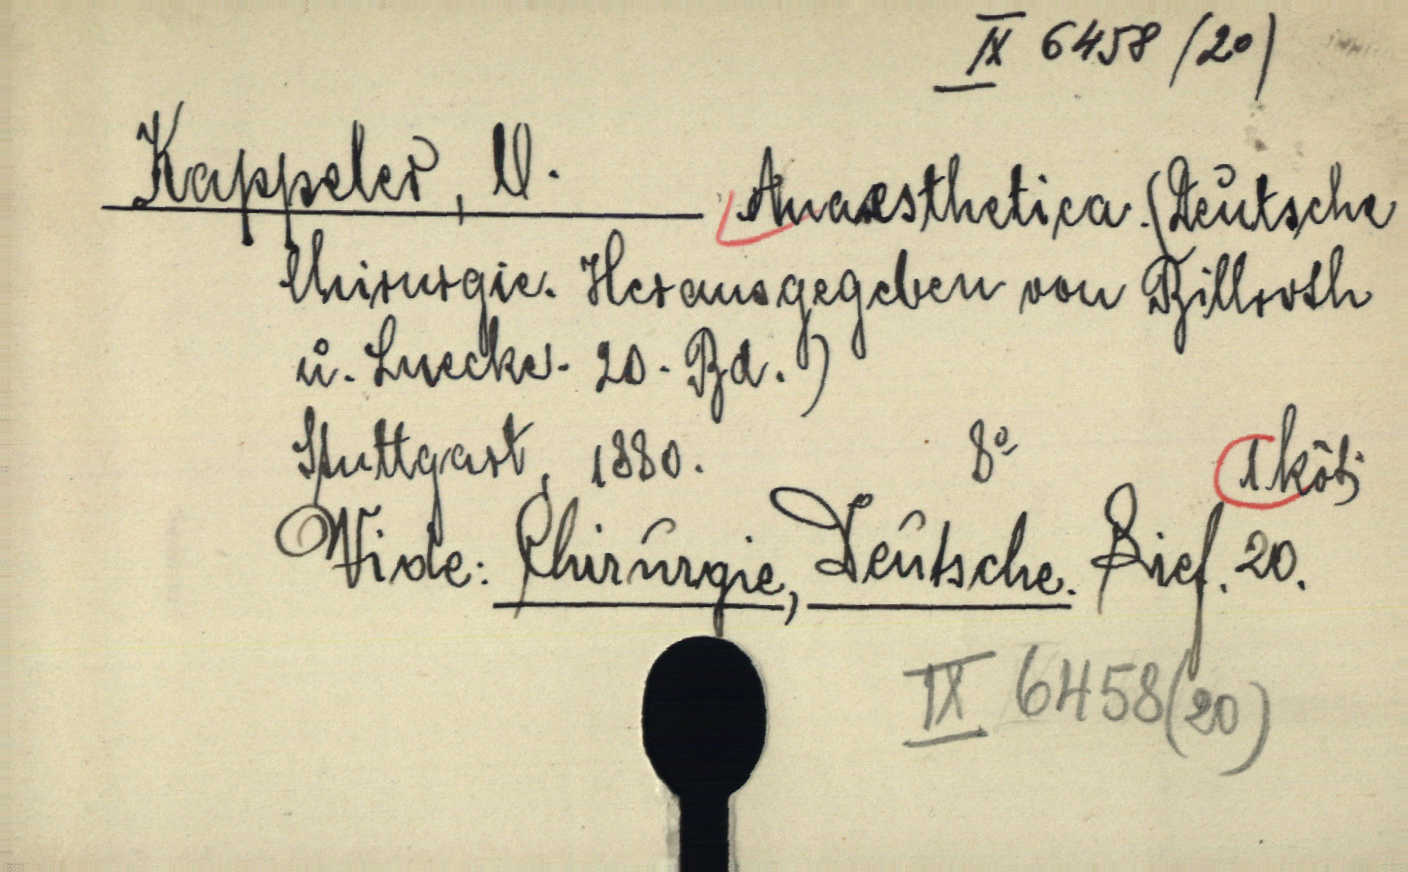 IX 6458 (20)
Kappeler, O.
Anaesthetica. (Deutsche
Chirurgie. Herausgegeben von Billroth
u. Luecke. 20. Bd.)
Stuttgart, 1880. 8° 1 köt;
Vide: Chirurgie, Deutsche. Lief. 20.
IX 6458 (20)